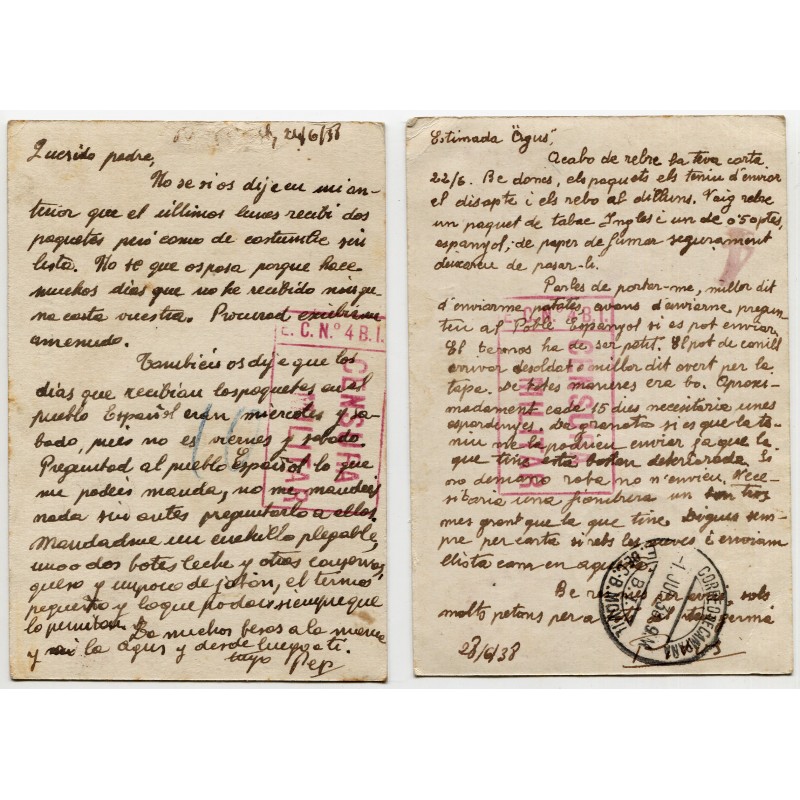 , 24/6/38
Querido padre,
No se si os dije en mi an-
terior que el últimos lunes recibi dos
paquetes peró como de costumbre sin
lista. No se que os pasa porque hace
muchos dias que no he recibido ningu-
na carta vuestra. Procurad
amenudo.
Tambien os dije que los
dias que recibian los paquetes en el
pueblo Español eran miercoles y sa-
bado, pues no es viernes y sabado.
Preguntad al pueblo Español lo que
me podeis manda, no me mandeis
nada sin antes preguntarlo a ellos.
Mandadme un cuchillo plegable,
uno o dos botes leche y otras conservas,
queso y un poco de jabón, el termos
pequeño y lo que podais siempre que
lo permitan. Da muchos besos a la mama
y la Agus y desde luego a ti.
tuyo Pep
E. C. N.º 4 B. I.
CENSURA
MILITAR
Estimada "Agus",
Acabo de rebre la teva carta
22/6. Be dones, els paquets els teniu d'enviar
el disapte i els rebo al dilluns. Vaig rebre
un paquet de tabac Ingles i un de 0'50 ptes,
espanyol, de paper de fumar segurament
deixareu de pasar-li.
Parles de portar-me, millor dit
d'enviarme patates, avans d'enviarne pregun-
teu al Poble Espanyol si es pot enviar.
El termos ha de ser petit. El pot de conill
arrivar desoldat o millor dit overt per la
tapa. De totes maneres era bo. Aproxi-
madament cada 15 dies necesitaria unes
espardenyes. De granota si es que la te-
niu me la podrieu enviar ja que la
que tinc esta deteriorada. Si
no demano roba no n'envieu. Nece-
sitaria una fiambrera un tros
mes grant que la que tinc. Digues sem-
pre per carta si rebs les meves i enviam
llista cam en
Be per avui, sols
molts petons per a
28/6/38
E. C. N.º 4 B. I.
CENSURA
MILITAR
CORREO DE CAMPAÑA
-1. JUL. 38. 9 M